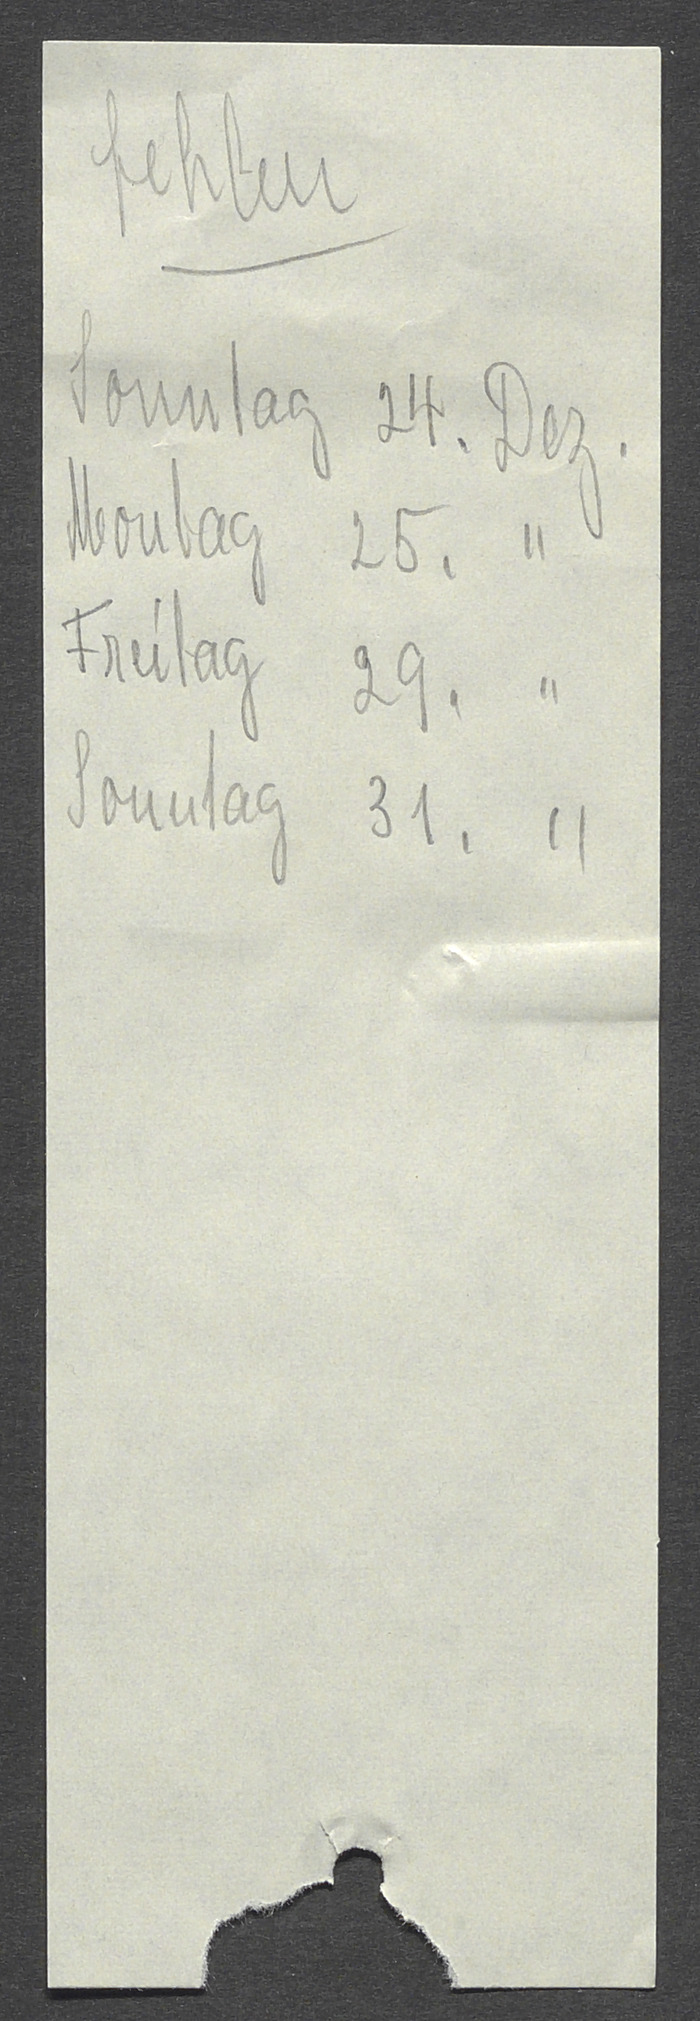 fehlen
Sonntag 24. Dez.
Montag 25. "
Freitag 29. "
Sonntag 31. "